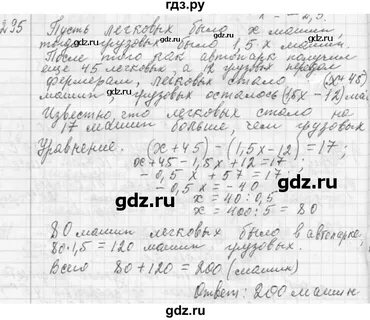 гдз.ру
235 Пусть легковых было x машин,
тогда грузовых было 1,5 x машин
После того как автопарк получил
еще 45 легковых а грузовых передал
фермерам, легковых стало (x+45)
машин, грузовых осталось (1,5x − 12) ма
Известно, что легковых стало на
17 машин больше, чем грузовых
Уравнение. (x+45) − (1,5x−12) = 17;
x+45−1,5x+12=17;
−0,5x+57=17;
−0,5x=−40
x=40:0,5
x=400:5=80
80 машин легковых было в автопарке,
80·1,5=120 машин грузовых.
Всего 80+120=200 (машин)
Ответ: 200 машин
gdz.ru
gdz.ru
gdz.ru
gdz.ru